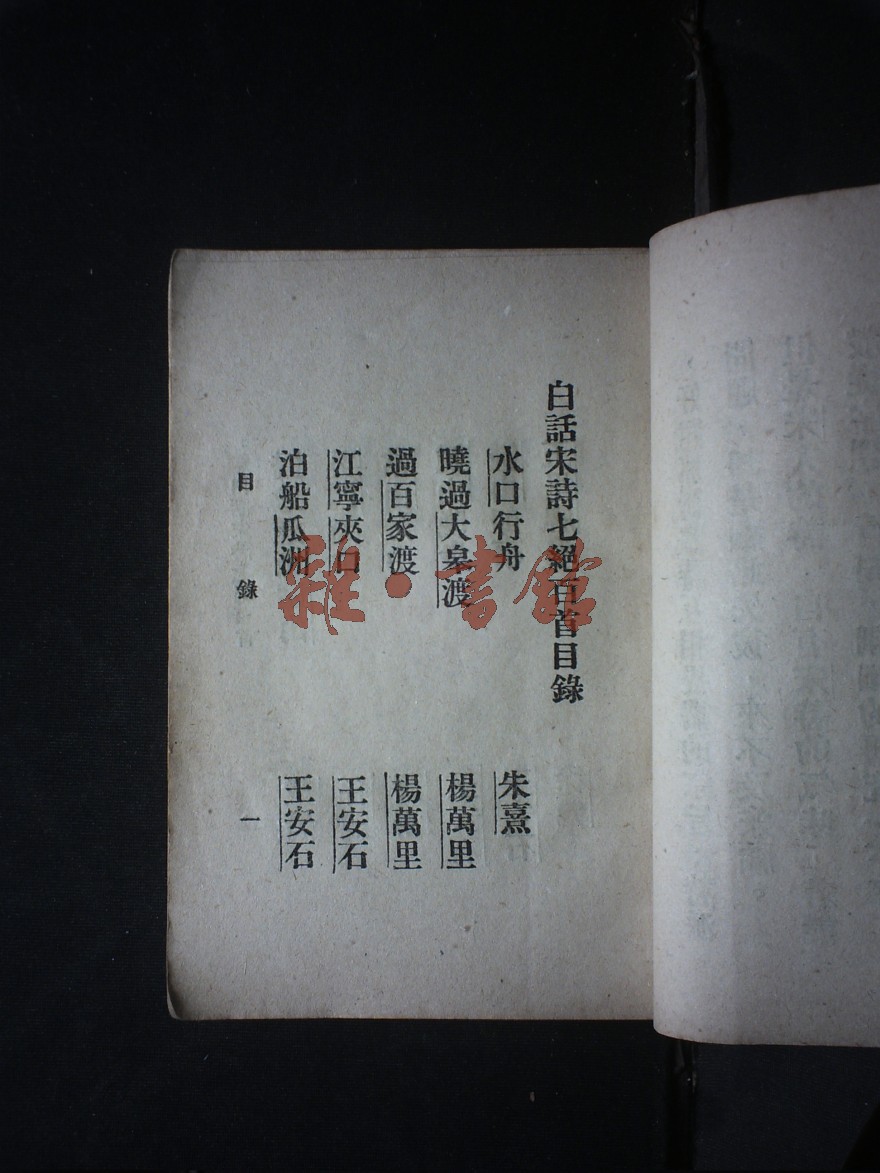 白話宋詩七絕百首目錄
水口行舟 朱熹
曉過大皋渡 楊萬里
過百家渡 楊萬里
江寧夾口 王安石
泊船瓜洲 王安石
目錄 一
雜·書館